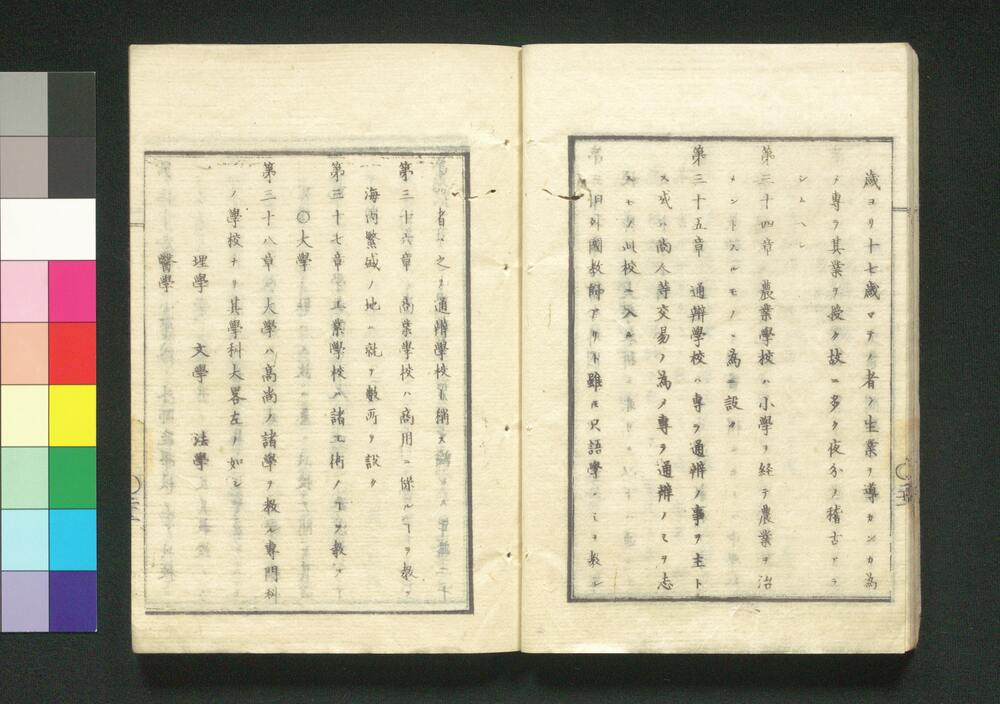 歳ヨリ十七歳マテノ者ノ生業ヲ導カンカ為
メ専ラ其業ヲ授ク故ニ多ク夜分ノ稽古ナラ
シムヘシ
第三十四章 農業學校ハ小學ヲ経テ農業ヲ治
メントスルモノヽ為ニ設ク
第三十五章 通辨學校ハ専ラ通辨ノ事ヲ主ト
ス或ハ商人等交易ノ為メ専ラ通辨ノミヲ志
スモノハ此校ニ入ル
但外國教師アリト雖𪜈只語學ノミヲ教ル
者ハ之ヲ通辨學校ト稱ス
第三十六章 商業學校ハ商用ニ係ルヿヲ教フ
海内繁盛ノ地ニ就テ數所ヲ設ク
第三十七章 工業學校ハ諸工術ノヿヲ教フ
〇大學
第三十八章 大學ハ高尚ノ諸學ヲ教ル専門科
ノ學校ナリ其學科大畧左ノ如シ
理學 文學 法學
醫學